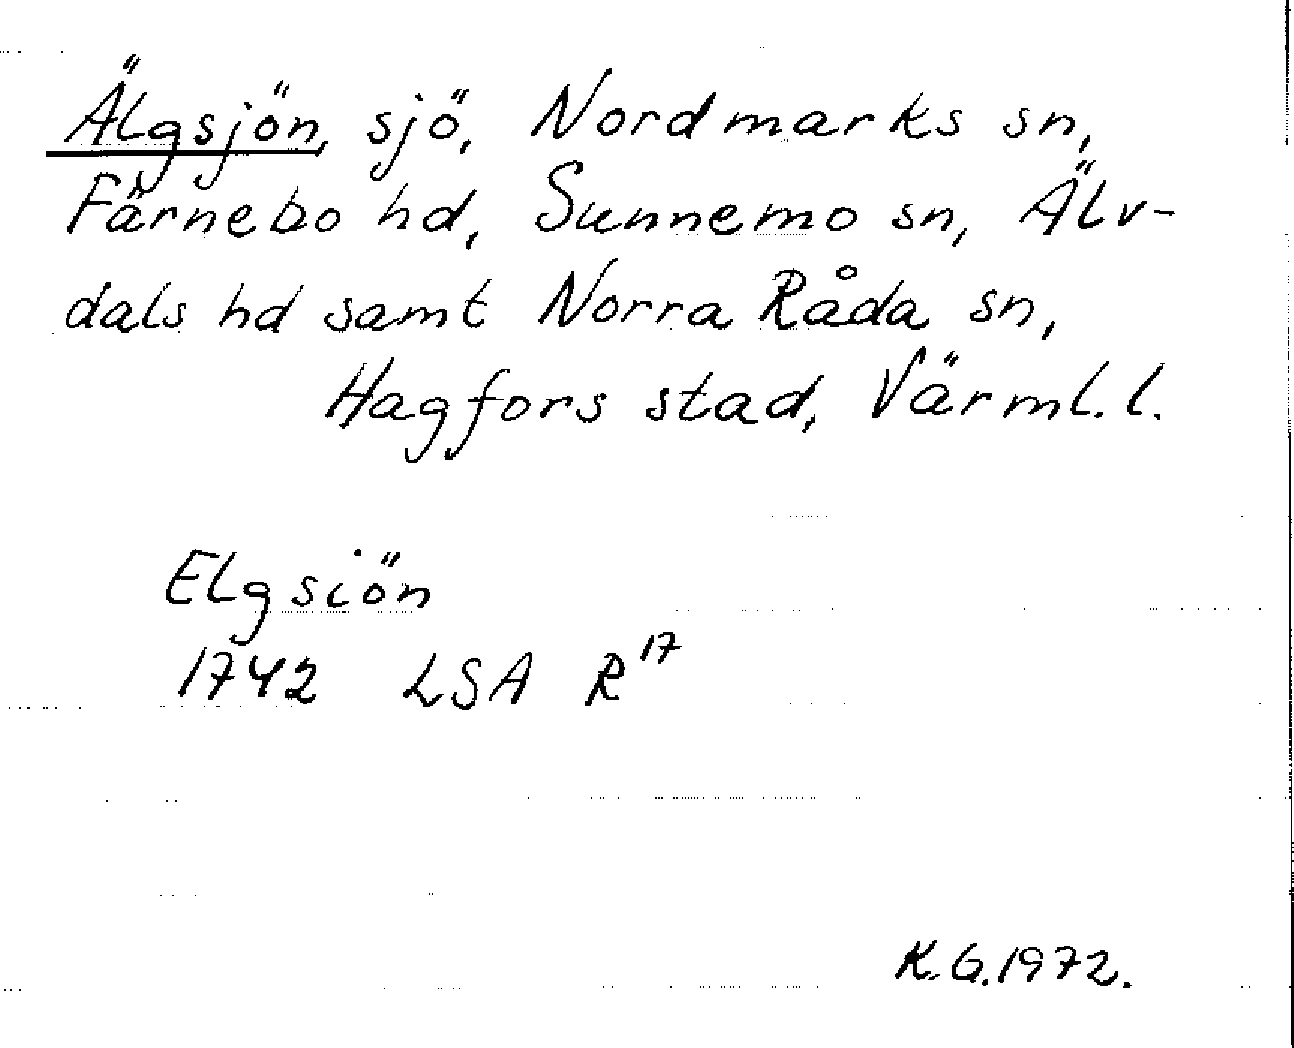 Älgsjön, sjö, Nordmarks sn,
Färnebo hd, Sunnemo sn, Älv-
dals hd samt Norra Råda sn,
Hagfors stad, Värml. l.
Elgsiön
1742 LSA R17
K.G. 1972.